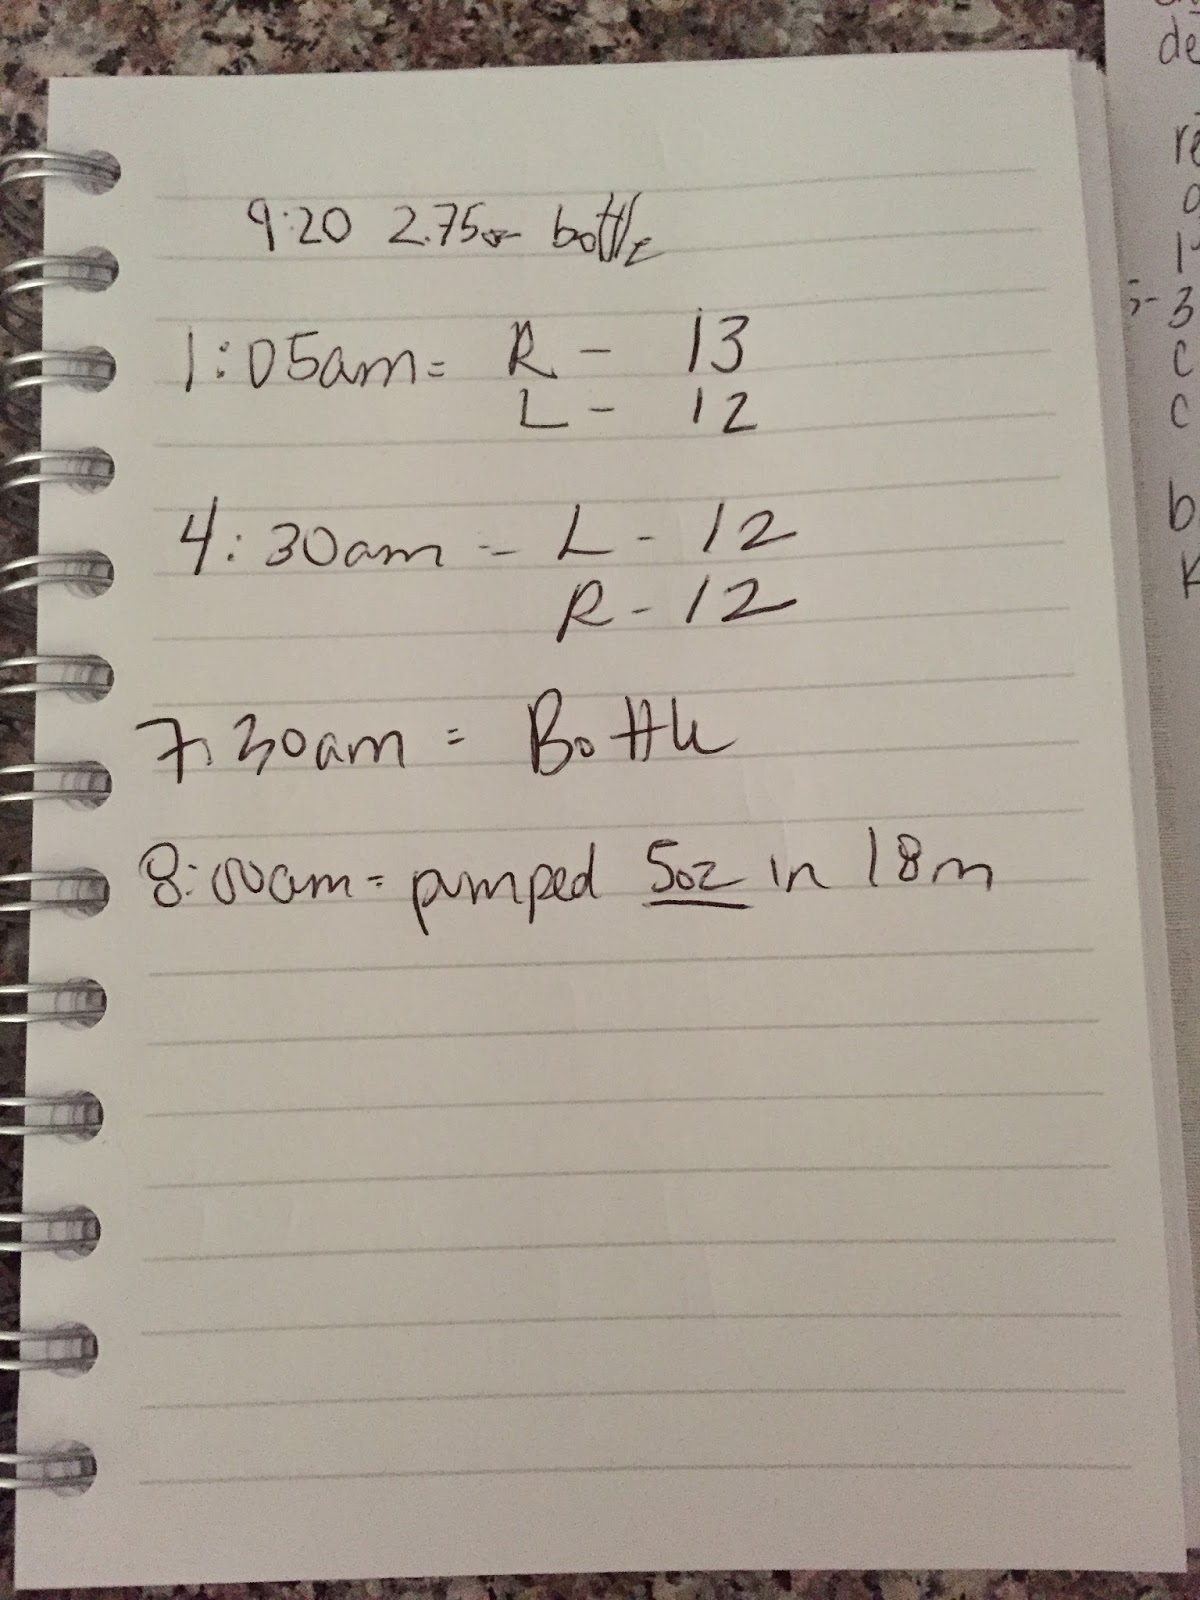 9:20 2.75oz bottle
1:05am = R - 13
L - 12
4:30am = L - 12
R - 12
7:30am = Bottle
8:00am = pumped 5oz in 18m
de
re
3
C
C
b
K